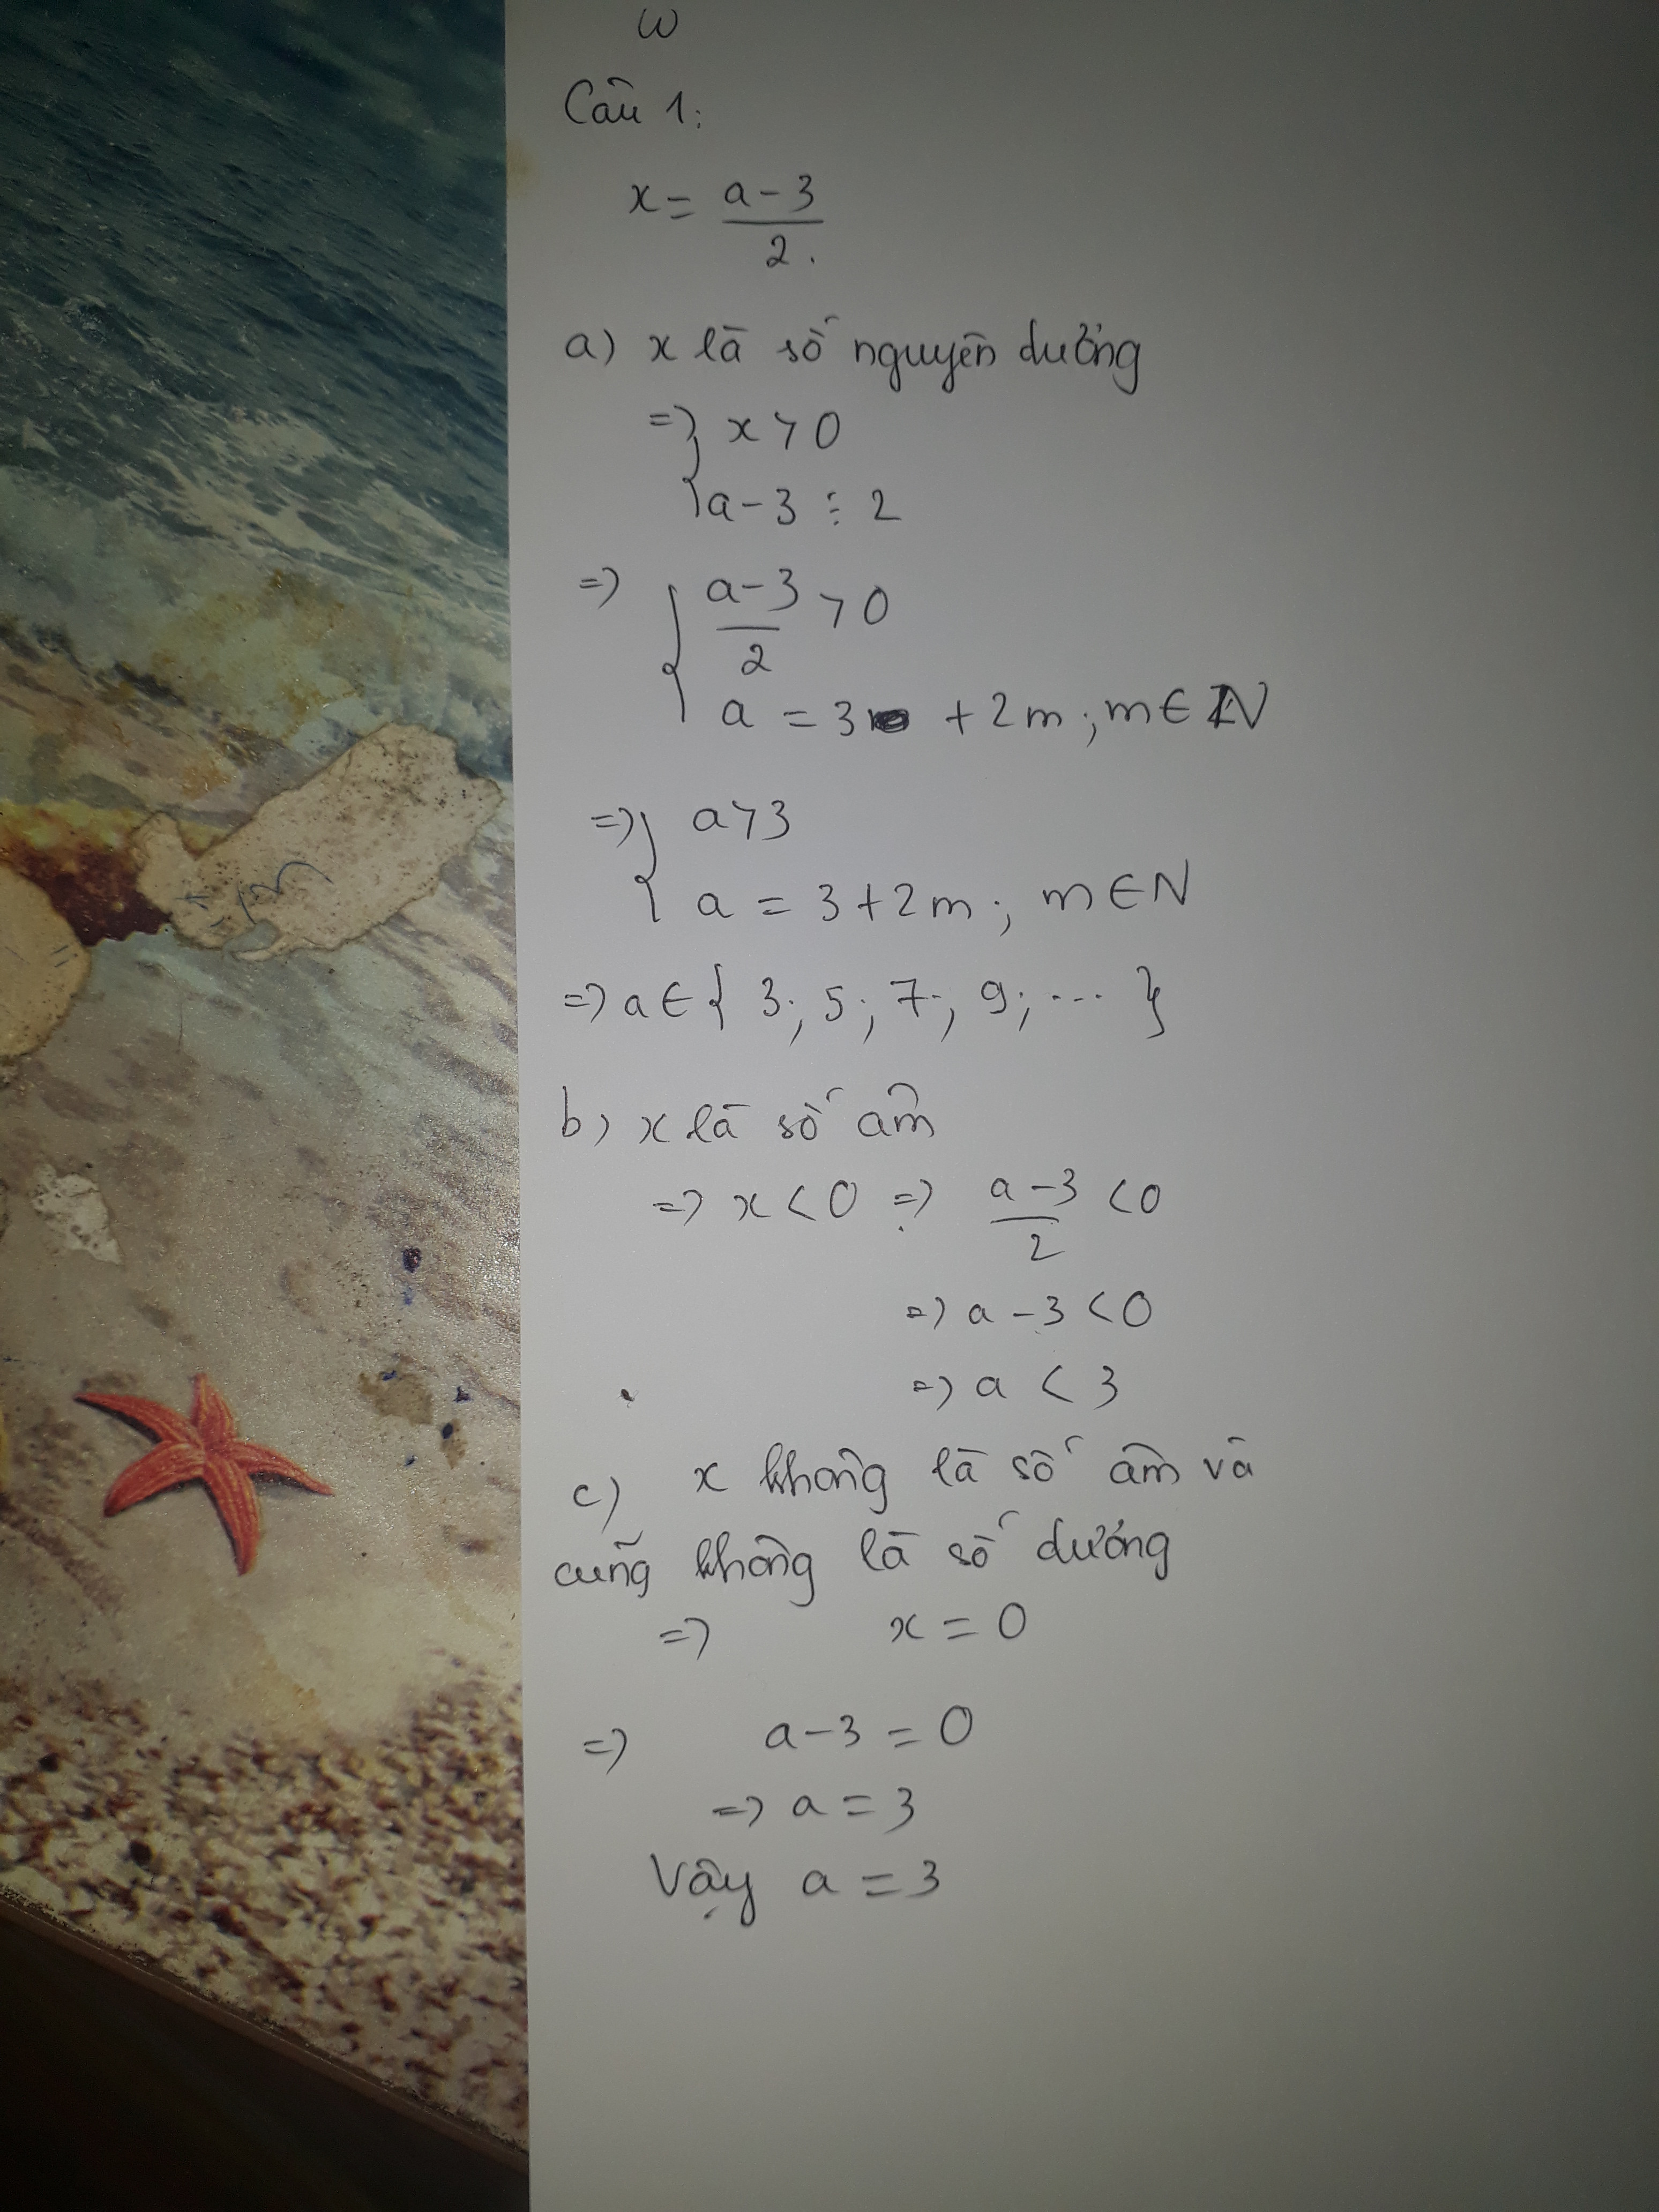 Câu 1:
x = a-3/2.
a) x là số nguyên dương
=> { x > 0
a-3 ⋮ 2
=> { a-3/2 > 0
a = 3 + 2m ; m ∈ N
=> { a > 3
a = 3 + 2m ; m ∈ N
=> a ∈ { 3 ; 5 ; 7 ; 9 ; ... }
b) x là số âm
=> x < 0 => a-3/2 < 0
=> a - 3 < 0
=> a < 3
c) x không là số âm và
cũng không là số dương
=> x = 0
=> a-3 = 0
=> a = 3
Vậy a = 3